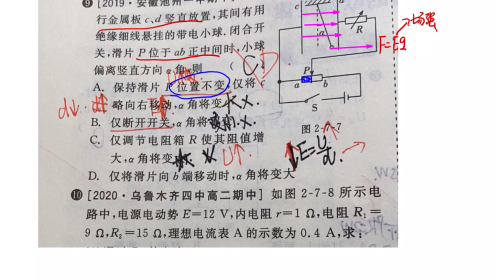 ⑨ [2019·安徽池州一
行金属板 c、d 竖直放置,其间有用
绝缘细线悬挂的带电小球. 闭合开
关,滑片 P 位于 ab 正中间时,小球
偏离竖直方向 α 角,则 (
A. 保持滑片 P 位置不变,仅将 c
略向右移动,α 角将变
B. 仅断开开关,α 角将变
C. 仅调节电阻箱 R 使其阻值增
大,α 角将变
D. 仅将滑片向 b 端移动时,α 角将变大
c
R
α
P
a
b
S
图 2-7-7
F=Eq
场强
d↓
U↑
↓E=U/d
⑩ [2020·乌鲁木齐四中高二期中] 如图 2-7-8 所示电
路中,电源电动势 E=12 V,内电阻 r=1 Ω,电阻 R₁=
9 Ω,R₂=15 Ω,理想电流表 A 的示数为 0.4 A,求: